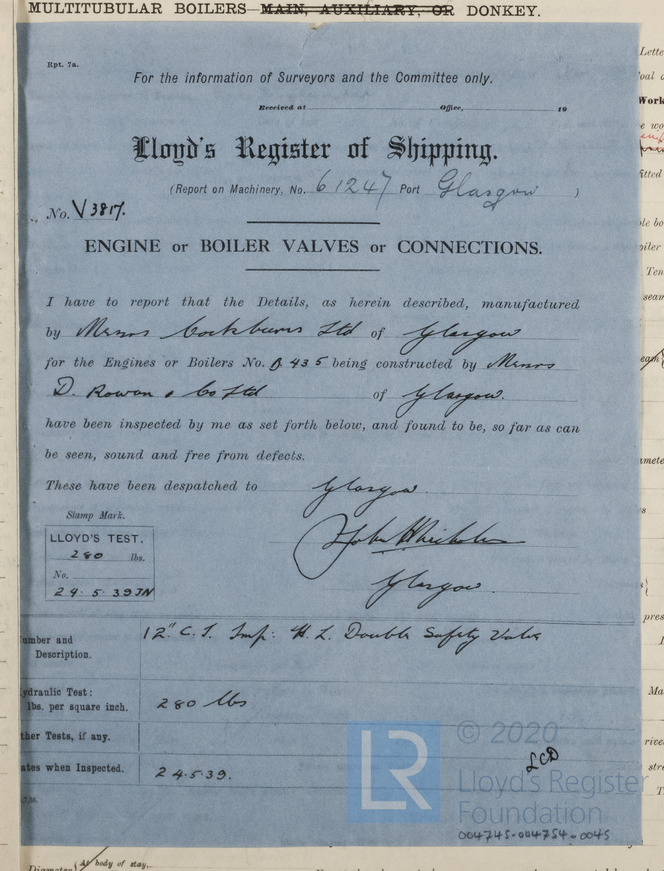 MULTITUBULAR BOILERS—MAIN, AUXILIARY, OR DONKEY.
Rpt. 7a.
For the information of Surveyors and the Committee only.
Received at Office, 19
Lloyd's Register of Shipping.
(Report on Machinery, No. 61247 Port Glasgow )
No. V 3817.
ENGINE or BOILER VALVES or CONNECTIONS.
I have to report that the Details, as herein described, manufactured
by Messrs Cockburns Ltd of Glasgow
for the Engines or Boilers No. B 435 being constructed by Messrs
D. Rowan & Co Ltd of Glasgow.
have been inspected by me as set forth below, and found to be, so far as can
be seen, sound and free from defects.
These have been despatched to Glasgow.
Stamp Mark.
LLOYD'S TEST.
280 lbs.
No.
24.5.39 JN
John
Glasgow.
umber and
Description.
12" C.I. Imp: H.L. Double Safety Valve
ydraulic Test:
lbs. per square inch.
280 lbs
ther Tests, if any.
ates when Inspected.
24.5.39.
LCD
LR
© 2020
Lloyd's Register
Foundation
004745-004754-0045
Diameter At body of stay,